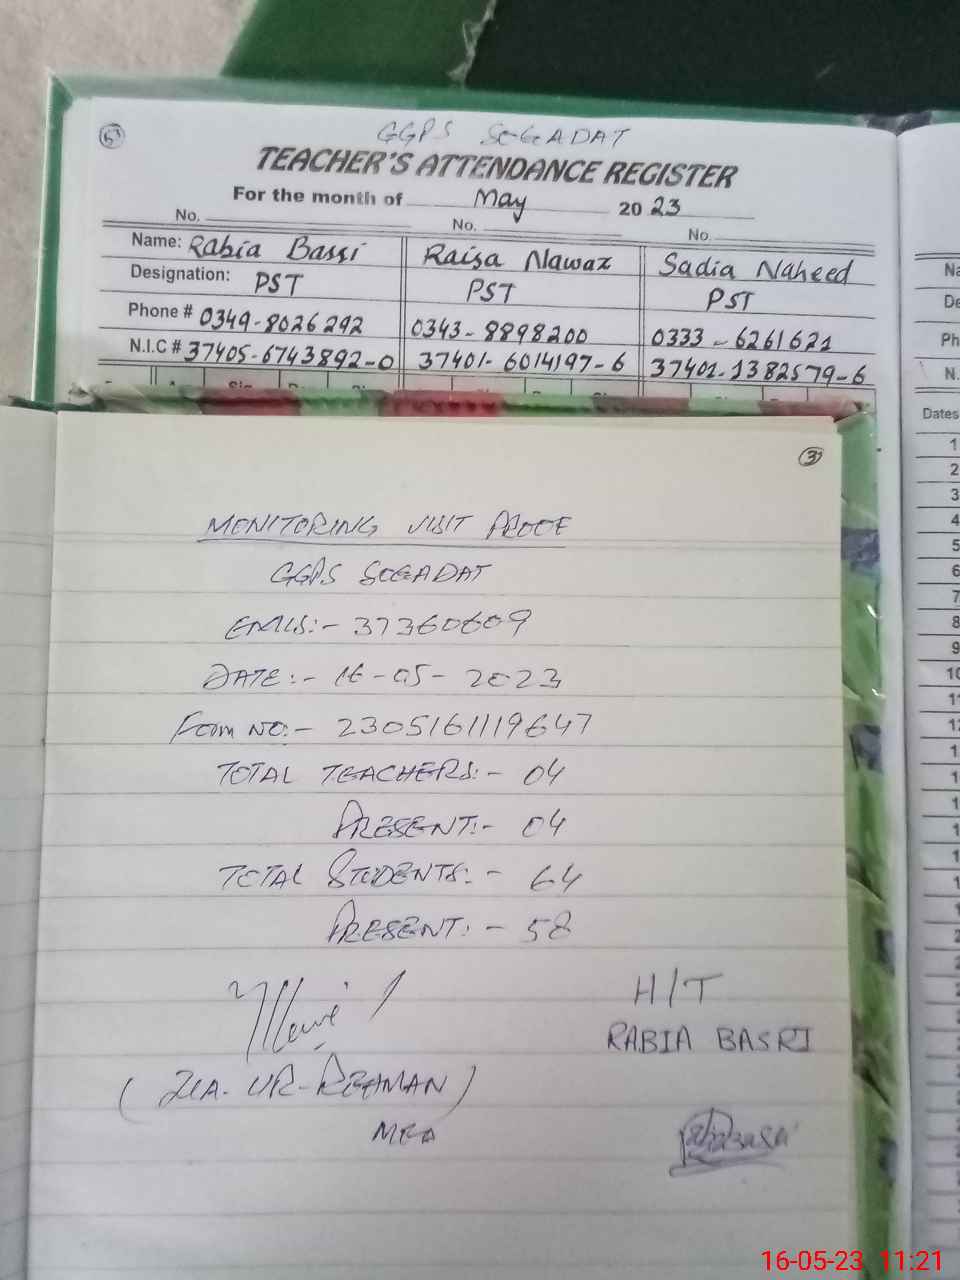 53
GGPS SOGADAT
TEACHER'S ATTENDANCE REGISTER
For the month of May 2023
No. No. No.
Name: Rabia Bassi Raisa Nawaz Sadia Naheed
Designation: PST PST PST
Phone # 0349-8026292 0343-8898200 0333-6261621
N.I.C # 37405-6743892-0 37401-6014197-6 37401-1382579-6
Na
De
Ph
N.
Dates
1
2
3
4
5
6
7
8
9
10
11
12
3
MONITORING VISIT PROOF
GGPS SOGADAT
EMIS:- 37360609
DATE:- 16-05-2023
Form NO:- 2305161119647
TOTAL TEACHERS:- 04
PRESENT:- 04
TOTAL STUDENTS:- 64
PRESENT:- 58
H/T
RABIA BASRI
(ZIA-UR-REHMAN)
MEA
16-05-23 11:21